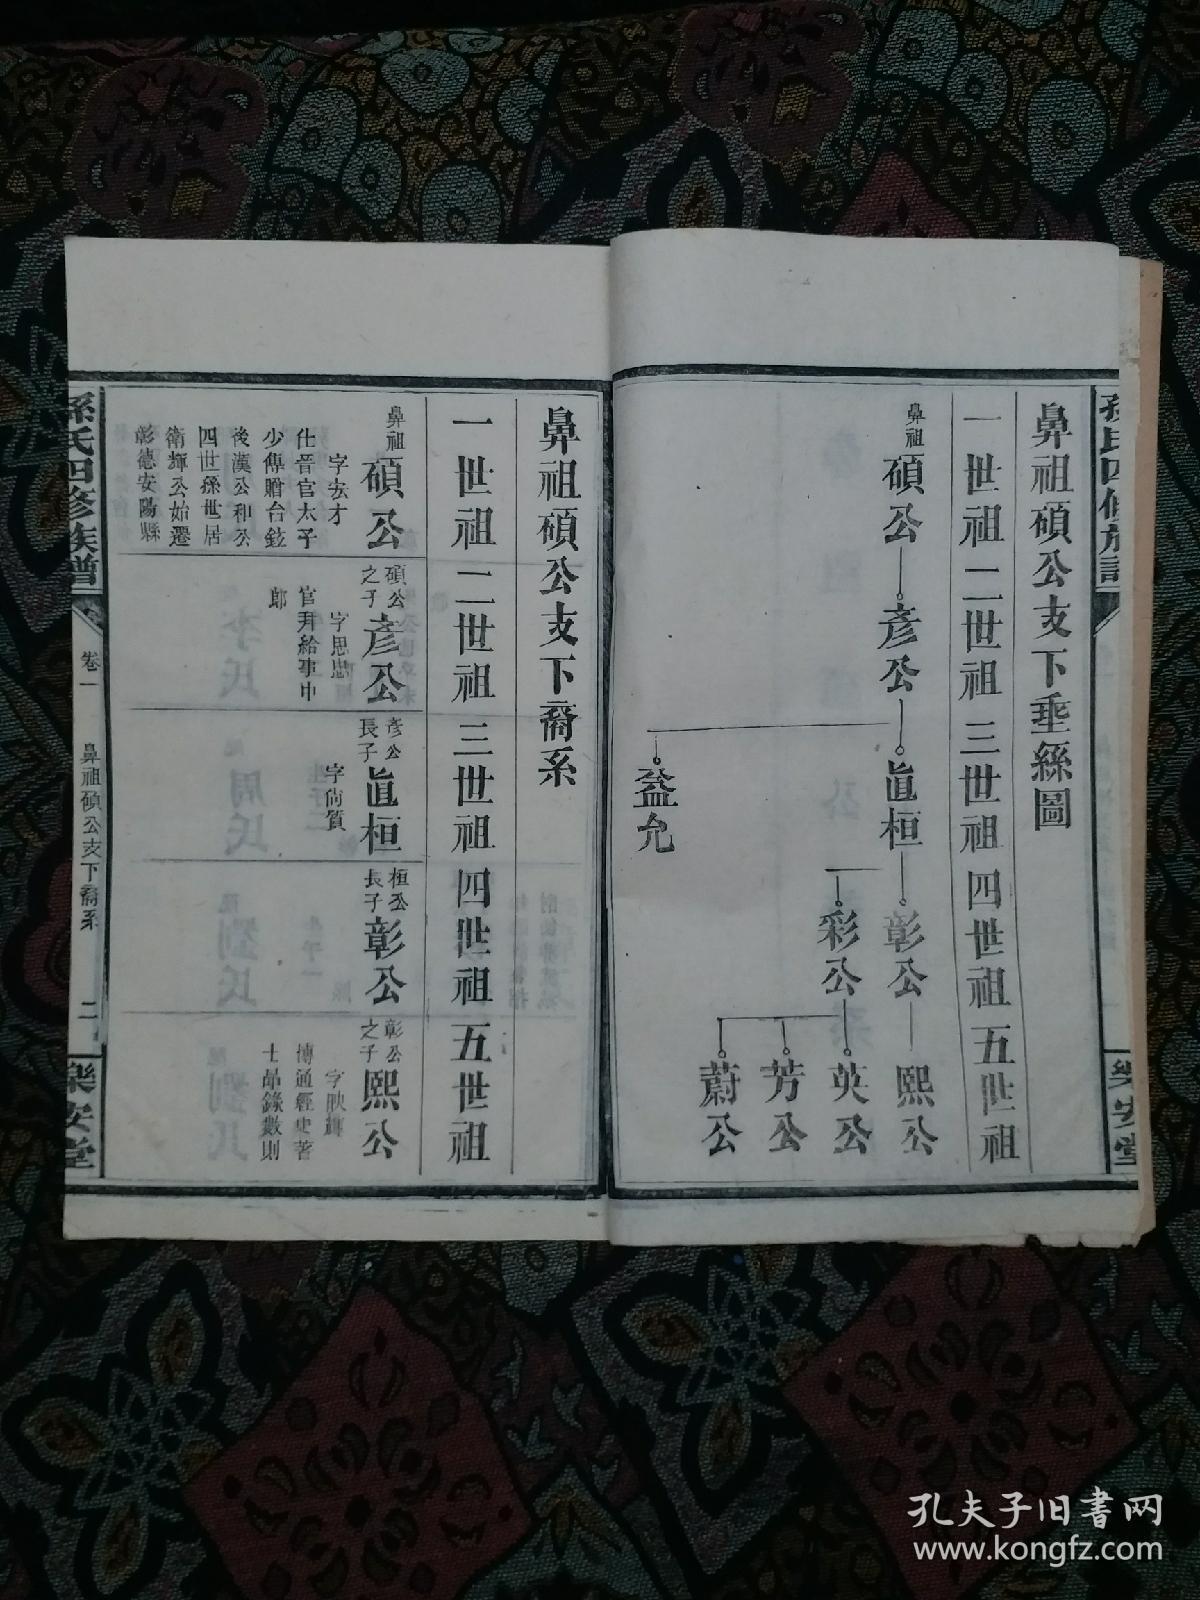 孫氏四修族譜
樂安堂
鼻祖碩公支下垂絲圖
一世祖 二世祖 三世祖 四世祖 五世祖
鼻祖碩公 彥公 眞桓 彰公 熙公
彩公 英公
芳公
蔚公
益允
鼻祖碩公支下裔系
一世祖 二世祖 三世祖 四世祖 五世祖
鼻祖 碩公
字玄才
仕晉官太子
少傳贈台鉉
後漢公和公
四世孫世居
衛輝公始遷
彰德安陽縣
碩公之子 彥公
字思忠
官拜給事中
郎
彥公長子 眞桓
字尚質
桓公長子 彰公
彰公之子 熙公
字映輝
博通經史著
士昂錄數則
孫氏四修族譜
卷一
鼻祖碩公支下裔系
二
樂安堂
孔夫子旧书网
www.kongfz.com